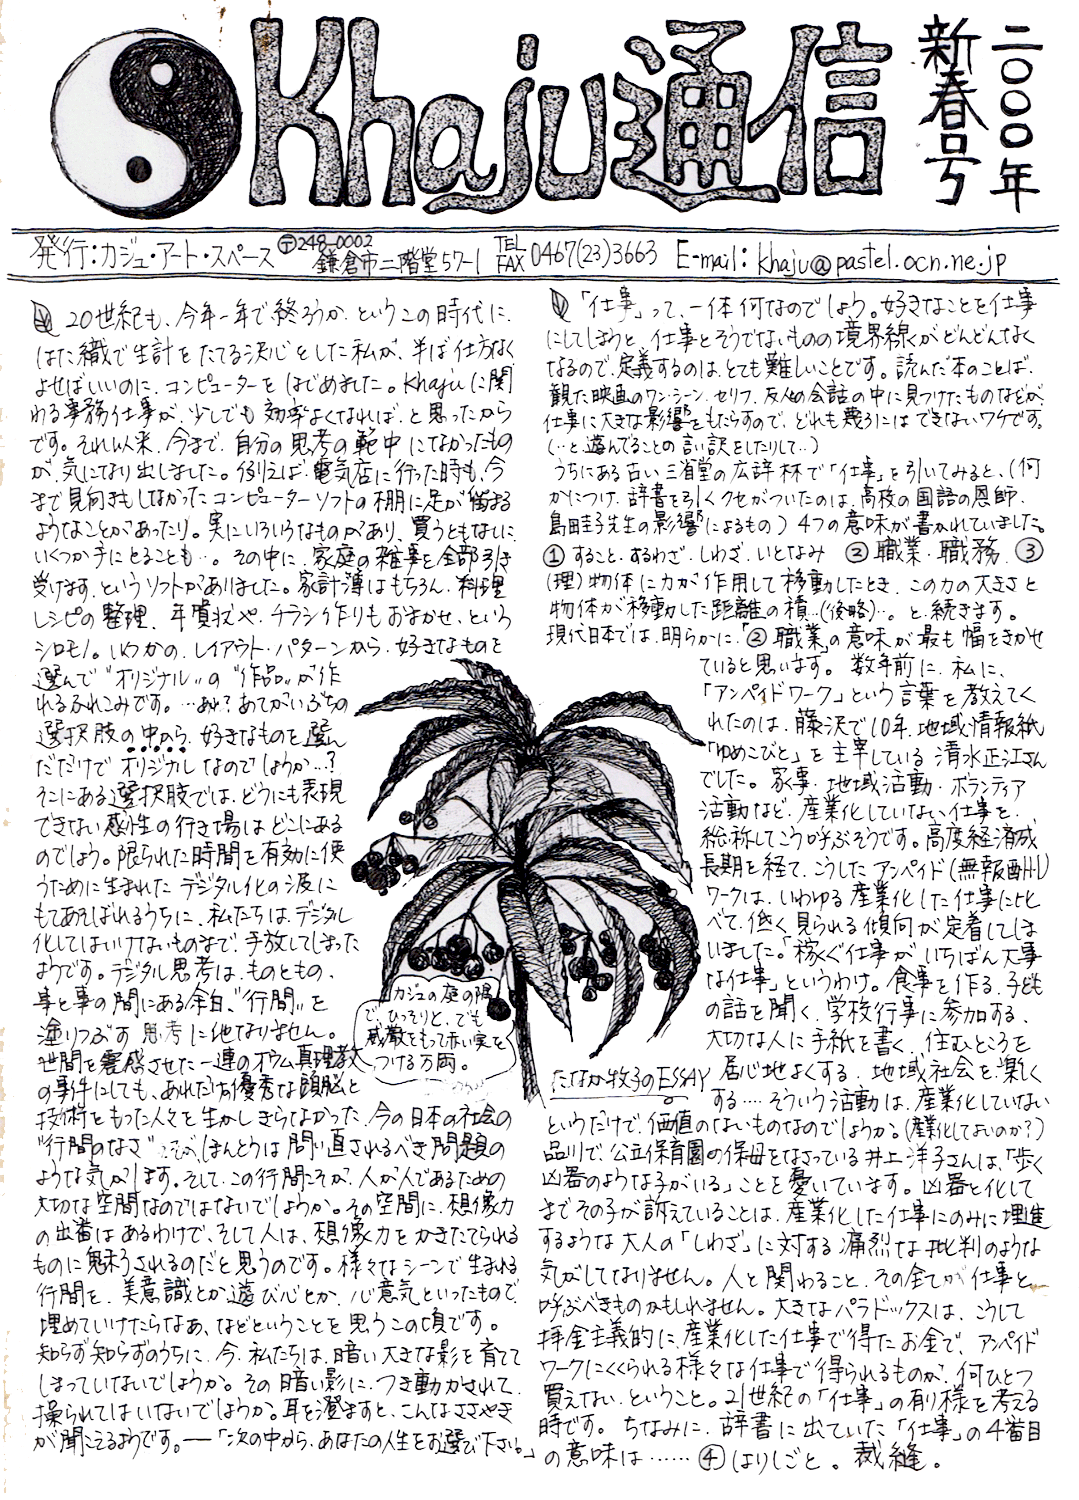 Khaju通信
二〇〇〇年
新春号
発行:カジュ・アート・スペース 〒248-0002 鎌倉市二階堂57-1 TEL FAX 0467(23)3663 E-mail: khaju@pastel.ocn.ne.jp
20世紀も、今年一年で終ろうか、というこの時代に、
はた織で生計をたてる決心をした私が、半ば仕方なく
よせばいいのに、コンピューターをはじめました。Khajuに関
わる事務仕事が、少しでも効率よくなれば、と思ったから
です。それ以来、今まで、自分の思考の範中になかったもの
が、気になり出しました。例えば、電気店に行った時も、今
まで見向きもしなかったコンピューターソフトの棚に足が留まる
ようなことがあったり。実にいろいろなものがあり、買うともなしに、
いくつか手にとることも…。その中に、家庭の雑事を全部引き
受けます、というソフトがありました。家計簿はもちろん、料理
レシピの整理、年賀状や、チラシ作りもおまかせ、という
シロモノ。いくつかの、レイアウト・パターンから、好きなものを
選んで“オリジナル”の“作品”が作
れるふれこみです。…あれ?あてがいぶちの
選択肢の中から、好きなものを選ん
だだけでオリジナルなのでしょうか…?
そこにある選択肢では、どうにも表現
できない感性の行き場はどこにある
のでしょう。限られた時間を有効に使
うために生まれたデジタル化の波に
もてあそばれるうちに、私たちは、デジタル
化してはいけないものまで、手放してしまった
ようです。デジタル思考は、ものともの、
事と事の間にある余白、“行間”を
塗りつぶす思考に他なりません。
世間を震感させた一連のオウム真理教
の事件にしても、あれだけ優秀な頭脳と
技術をもった人々を生かしきらなかった、今の日本の社会の
“行間のなさ”こそが、ほんとうは問い直されるべき問題の
ような気がします。そして、この行間こそが、人が人であるための
大切な空間なのではないでしょうか。その空間に、想像力
の出番はあるわけで、そして人は、想像力をかきたてられる
ものに魅きうされるのだと思うのです。様々なシーンで生まれる
行間を、美意識とか遊び心とか、心意気といったもので、
埋めていけたらなあ、などということを思うこの頃です。
知らず知らずのうちに、今、私たちは、暗い大きな影を育てて
しまっていないでしょうか。その暗い影に、つき動かされて、
操られてはいないでしょうか。耳を澄ますと、こんなささやき
が聞こえるようです。―「次の中から、あなたの人生をお選び下さい。」
カジュの庭の隅
で、ひっそりと、でも
威厳をもって赤い実を
つける万両。
「仕事」って、一体何なのでしょう。好きなことを仕事
にしてしまうと、仕事とそうでないものの境界線がどんどんなく
なるので、定義するのは、とても難しいことです。読んだ本のことば、
観た映画のワン・シーン、セリフ、友人の会話の中に見つけたものなどが、
仕事に大きな影響をもたらすので、どれも侮うにはできないワケです。
(…と遊んでることの言い訳をしたりして…)
うちにある古い三省堂の広辞林で「仕事」を引いてみると、(何
かにつけ、辞書を引くクセがついたのは、高校の国語の恩師、
島田圭子先生の影響によるもの)4つの意味が書かれていました。
①すること、するわざ、しわざ、いとなみ ②職業・職務 ③
(理)物体に力が作用して移動したとき、この力の大きさと
物体が移動した距離の積…(後略)…。と、続きます。
現代日本では、明らかに、「②職業」の意味が最も幅をきかせ
ていると思います。数年前に、私に、
「アンペイドワーク」という言葉を教えてく
れたのは、藤沢で10年、地域情報紙
「ゆめこびと」を主宰している清水正江さん
でした。家事・地域活動・ボランティア
活動など、産業化していない仕事を、
総称してこう呼ぶそうです。高度経済成
長期を経て、こうしたアンペイド(無報酬の)
ワークは、いわゆる産業化した仕事に比
べて、低く見られる傾向が定着してしま
いました。「稼ぐ仕事がいちばん大事
な仕事」というわけ。食事を作る、子ども
の話を聞く、学校行事に参加する、
大切な人に手紙を書く、住むところを
居心地よくする、地域社会を楽しく
する‥‥そういう活動は、産業化していない
というだけで、価値のないものなのでしょうか。(産業化してよいのか?)
品川で、公立保育園の保母をなさっている井上洋子さんは、「歩く
凶器のような子がいる」ことを憂いています。凶器と化して
までその子が訴えていることは、産業化した仕事にのみに埋進
するような大人の「しわざ」に対する痛烈な批判のような
気がしてなりません。人と関わること、その全てが仕事と
呼ぶべきものかもしれません。大きなパラドックスは、こうして
拝金主義的に、産業化した仕事で得たお金で、アンペイド
ワークにくくられる様々な仕事で得られるものが、何ひとつ
買えない、ということ。21世紀の「仕事」の有り様を考える
時です。ちなみに、辞書に出ていた「仕事」の4番目
の意味は……④はりしごと。裁縫。
たなか牧子のESSAY